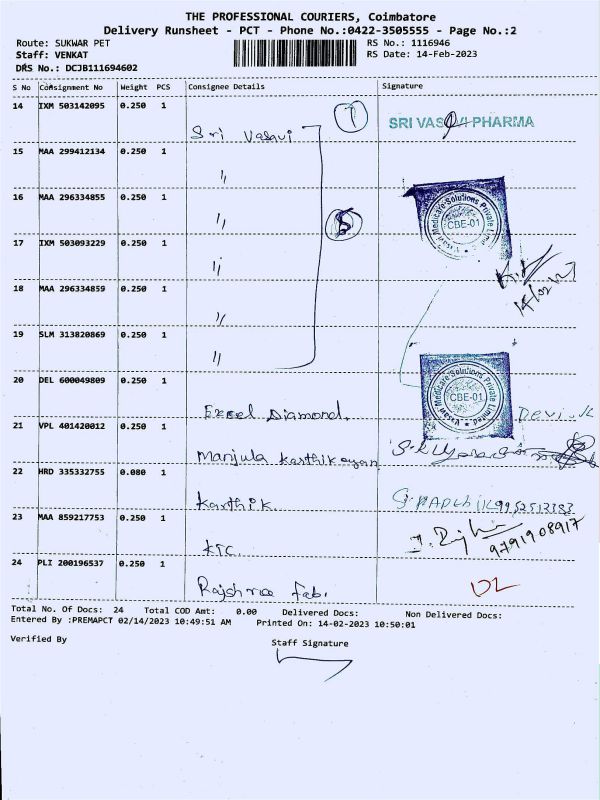 THE PROFESSIONAL COURIERS, Coimbatore
Delivery Runsheet - PCT - Phone No.:0422-3505555 - Page No.:2
Route: SUKWAR PET RS No.: 1116946
Staff: VENKAT RS Date: 14-Feb-2023
DRS No.: DCJB111694602
S No Consignment No Weight PCS Consignee Details Signature
14 IXM 503142095 0.250 1 Sri Vasavi 7 SRI VASAVI PHARMA
15 MAA 299412134 0.250 1 "
16 MAA 296334855 0.250 1 " 5 Vasavi Medicare Solutions Private Limited CBE-01
17 IXM 503093229 0.250 1 "
18 MAA 296334859 0.250 1 "
19 SLM 313820869 0.250 1 "
20 DEL 600049809 0.250 1 Excel Diamond. Vasavi Medicare Solutions Private Limited CBE-01
21 VPL 401420012 0.250 1 Manjula Karthikeyan
22 HRD 335332755 0.080 1 Karthik
23 MAA 859217753 0.250 1 KTC. 9791908917
24 PLI 200196537 0.250 1 Rajshree Fab. DL
Total No. Of Docs: 24 Total COD Amt: 0.00 Delivered Docs: Non Delivered Docs:
Entered By :PREMAPCT 02/14/2023 10:49:51 AM Printed On: 14-02-2023 10:50:01
Verified By Staff Signature